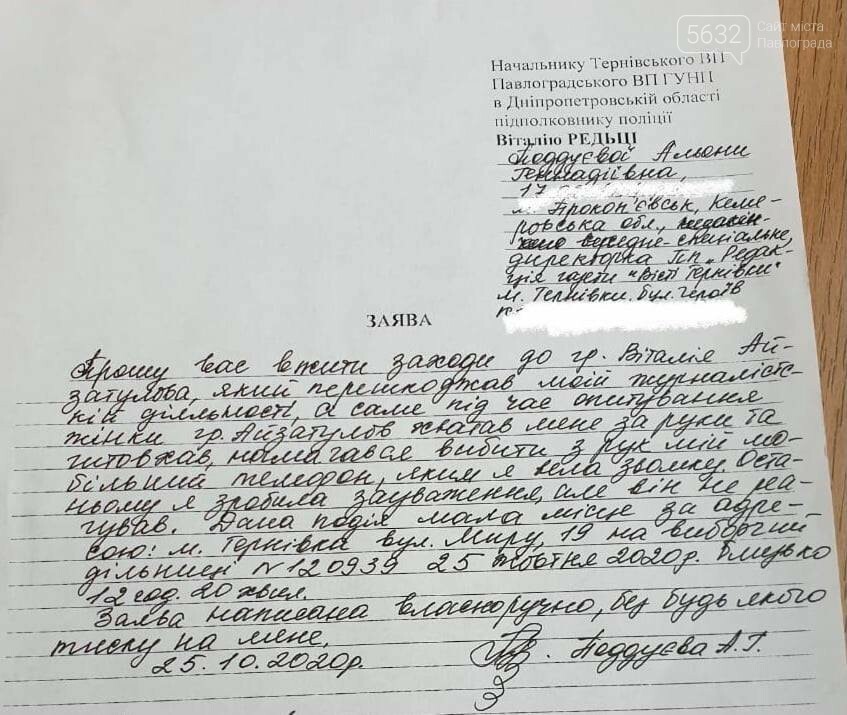 5632
Сайт міста
Павлограда
Начальнику Тернівського ВП
Павлоградського ВП ГУНП
в Дніпропетровській області
підполковнику поліції
Віталію РЕДЬЦІ
Поддуєвої Альони
Геннадіївна,
17
м. Прокоп'євськ, Кеме-
ровська обл,
середнє-спеціальне,
директорка ПП „Редак-
ція газети "Вісті Тернівки"
м. Тернівки. бул. Героїв
ЗАЯВА
Прошу вас вжити заходи до гр. Віталія Ай-
затулова, який перешкоджав моїй журналістс-
кій діяльності, а саме під час опитування
жінки гр. Айзатулов хватав мене за руки та
штовхав, намагався вибити з рук мій мо-
більний телефон, яким я вела зьомку. Оста-
ньому я зробила зауваження, але він не реа-
гував. Дана подія мала місце за адре-
сою: м. Тернівка вул. Миру, 19 на виборчий
дільниці №120939 25 жовтня 2020р. близько
12 год. 20 хвил.
Заява написана власноручно, без будь якого
тиску на мене.
25.10.2020р.
Поддуєва А.Г.